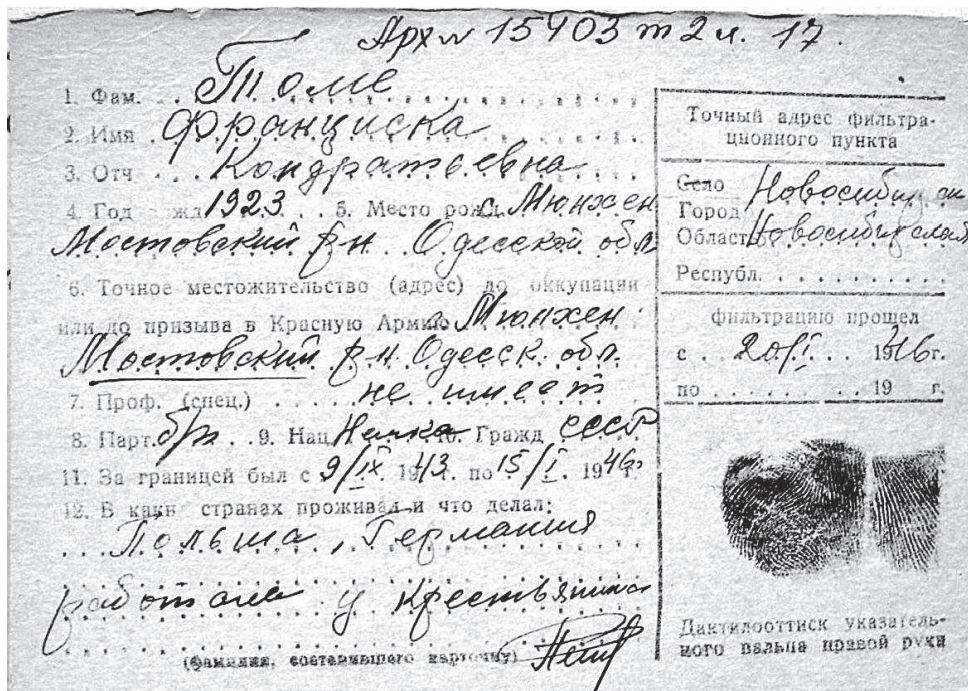 Арх № 15403 т 2 л. 17.
1. Фам. Томе
2. Имя Франциска
3. Отч Кондратьевна
4. Год рожд 1923 5. Место рожд. с. Мюнхен
Мостовский р-н. Одесской обл
6. Точное местожительство (адрес) до оккупации
или до призыва в Красную Армию Мюнхен
Мостовский р-н Одесск. обл.
7. Проф. (спец.) не имеет
8. Парт. б/п 9. Нац Немка 10. Гражд СССР
11. За границей был с 9/IX 1943г. по 15/I. 1946г.
12. В каких странах проживал и что делал:
Польша, Германия
работала у крестьянина
(фамилия, составившего карточку)
Точный адрес фильтра-
ционного пункта
Село Новосибирск
Город
Область Новосибирская
Республ.
фильтрацию прошел
с 20/I. 1946г.
по 19 г.
Дактилооттиск указатель-
ного пальца правой руки